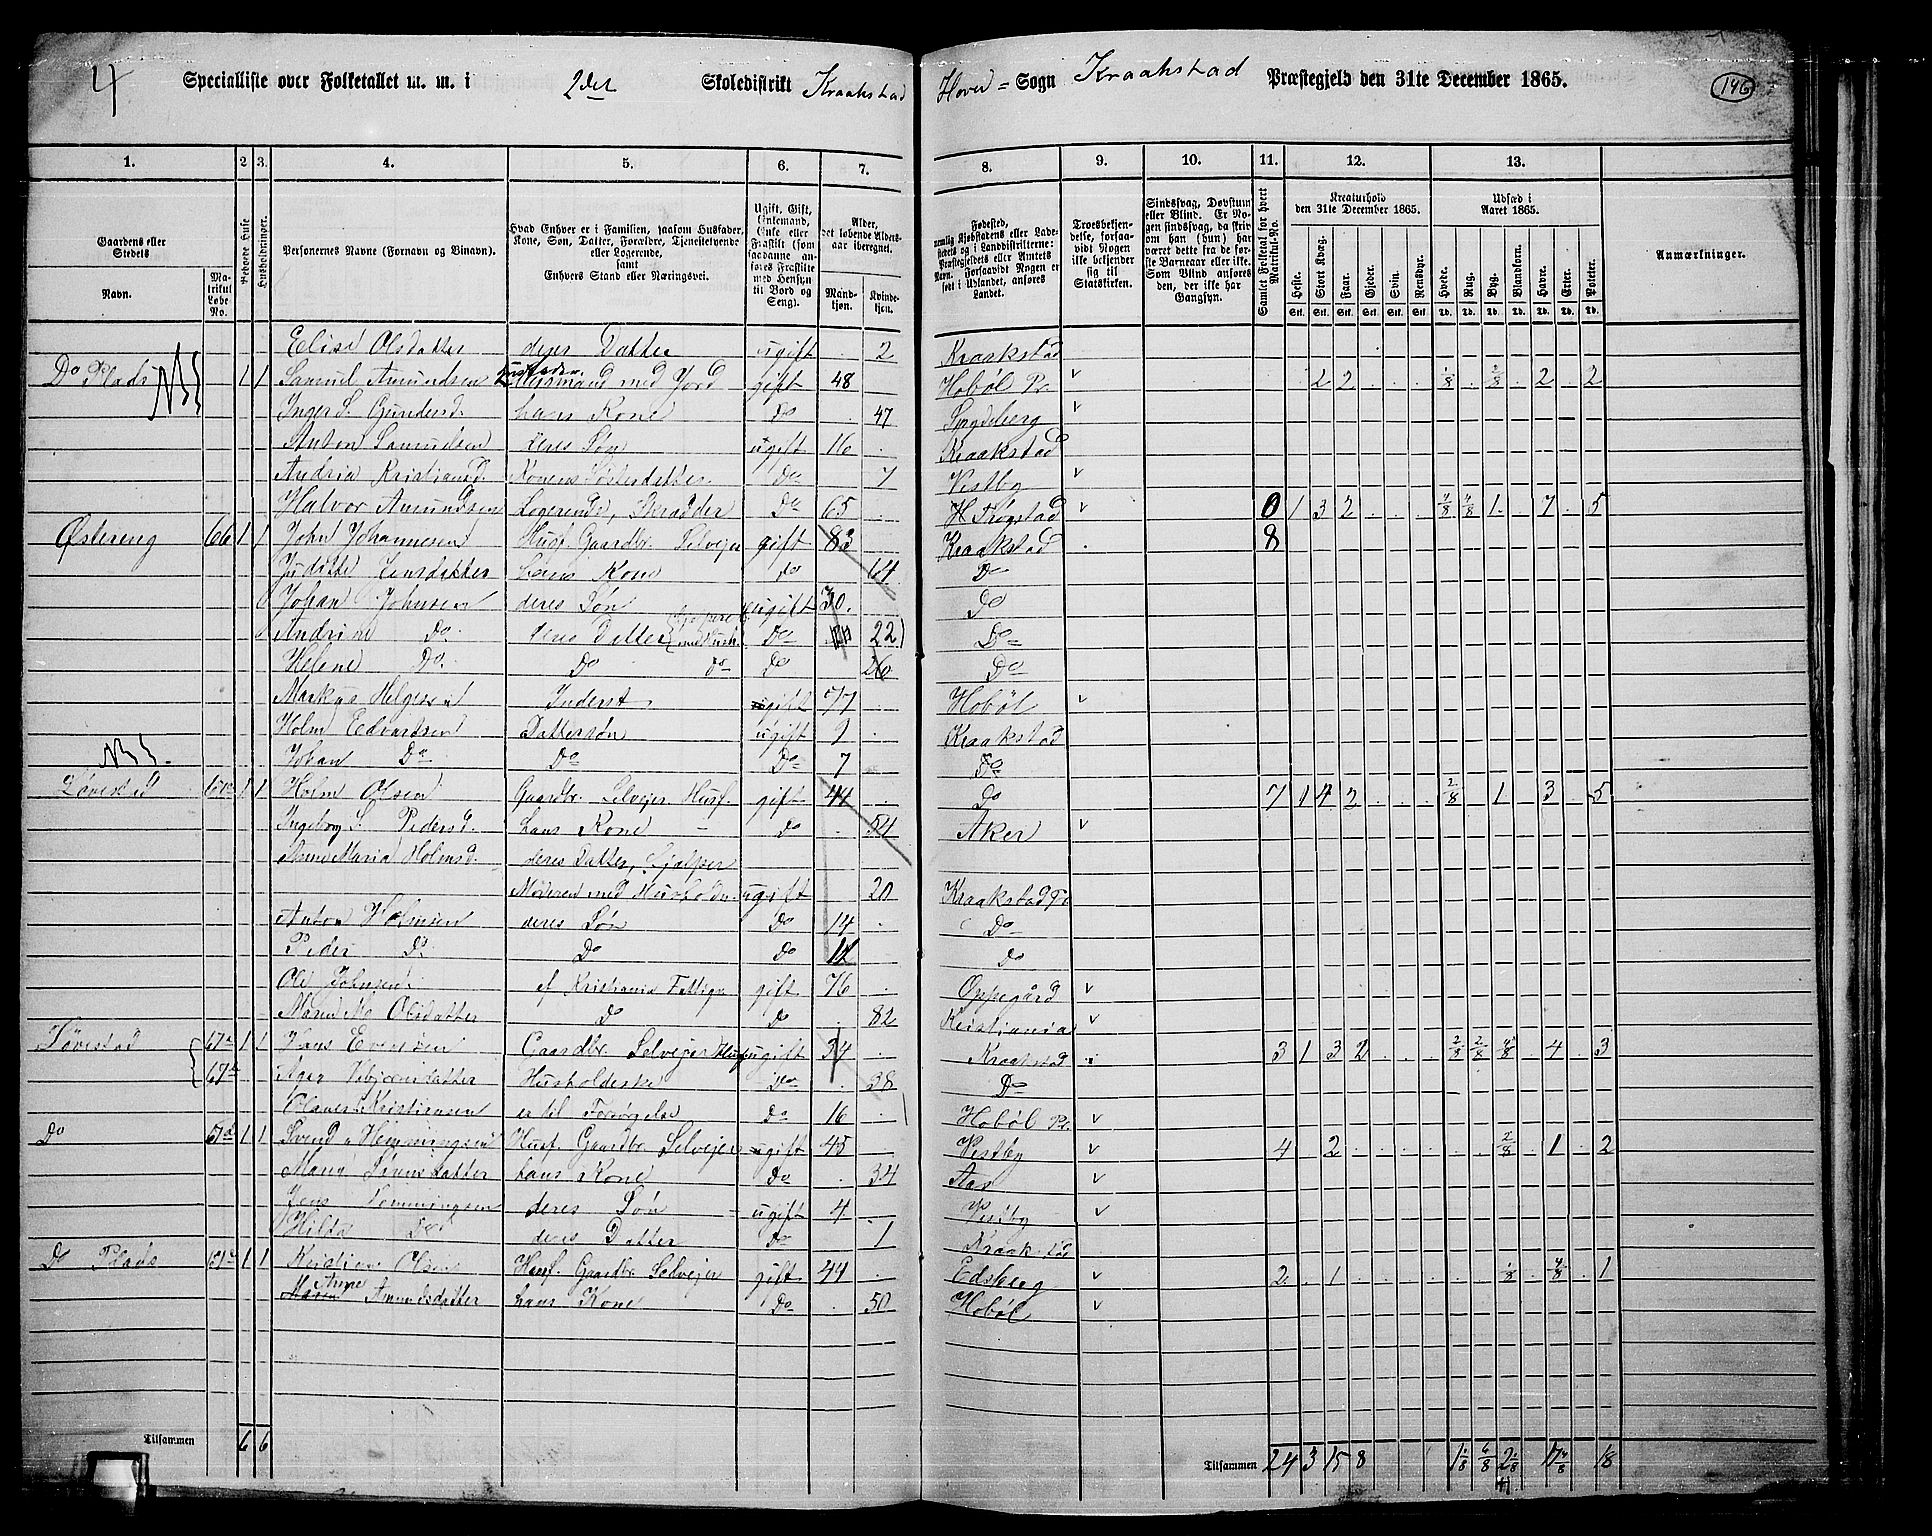 4 Specialliste over Folketallet m. m. i 2det Skoledistrikt Kraakstad Hoved = Sogn Kraakstad Præstegjeld den 31te December 1865. 146
1. 2 3. 4. 5. 6. 7. 8. 9. 10. 11. 12. 13.
Gaardens eller Stedets
Navn.
Matrikul Løbe-No.
Beboede Huse
Husholdninger.
Personernes Navne (Fornavn og Vinavn).
Hvad Enhver er i Familien, saasom Husfader, Kone, Søn, Datter, Forældre, Tjenestetyende eller Logerende,
samt
Enhvers Stand eller Næringsvei.
Ugift, Gift, Enkemand, Enke eller Fraskilt (som saadanne anføres Fraskilte med Hensyn til Bord og Seng).
Alder, det løbende Alders-aar iberegnet.
Mandkjøn. Kvindekjøn.
Troesbekjendelse, forsaavidt Nogen ikke bekjender sig til Statskirken.
Sindssvag, Døvstum eller Blind.
Samlet Folketal for hvert Matrikul-No.
Kreaturhold den 31te December 1865.
Heste. Stort Kvæg. Faar. Gjeder. Svin. Rensdyr.
Udsæd i Aaret 1865.
Hvede. Rug. Byg. Blandkorn. Havre. Erter. Poteter.
Anmærkninger.
Elise Olsdatter deres Datter ugift 2 Kraakstad
Do Plads 1 1 Samuel Amundsen Huusmand med Jord gift 48 Hobøl Pr. 2 2 1/8 2/8 2 2
Inger S. Gundersd. hans Kone Do 47 Spydeberg
Anton Samuelsen deres Søn ugift 16 Kraakstad
Andria Kristiansd. Konens Søsterdatter Do 7 Vestby
Halvor Amundsen Logerende, Skrædder Do 65 Trøgstad 0 1 3 2 4/8 4/8 1 7 5
Østereng 66 1 1 John Johannesen Husf. Gaardbr. Selveier gift 83 Kraakstad 8
Juditte Jensdatter hans Kone Do 64 Do
Johan Johnsen deres Søn ugift 30 Do
Andrine Do deres Datter Do 22 Do
Helene Do Do do Do 26 Do
Markus Helgesen Inderst gift 77 Hobøl
Holm Edvardsen Dattersøn ugift 9 Kraakstad
Johan Do Do Do 7 Do
Løvestad 67 1 1 Holm Olsen Gaardbr. Selveier Husf. gift 44 Do 7 1 4 2 2/8 1 3 5
Ingeborg S. Pedersd. hans Kone Do 54 Aker
Anne Maria Holmsd. deres Datter, hjælper
Moderen med Husholdn. ugift 20 Kraakstad Pr
Anton Holmsen deres Søn Do 14 Do
Peder Do Do Do 12 Do
Ole Johnsen af Kristiania Fattigv. gift 76 Oppegård
Maren Ma. Olsdatter Do Do 82 Kristiania
Løvestad 67 1 1 Hans Evensen Gaardbr. Selveier Husf. ugift 34 Kraakstad 3 1 3 2 2/8 2/8 4/8 4 3
67 Husholderske Do 38 Do
Kristiansen er til Forsørgelse Do 16 Hobøl Pr.
Do 67 1 1 Svend Hemmingsen Husf. Gaardbr. Selveier gift 45 Vestby 4 2 2/8 1 2
Maria Sørensdatter hans Kone Do 34 Aas
Jens Hemmingsen deres Søn ugift 4 Vestby
Hilda Do deres Datter Do 1 Kraakstad
Do Plads 67 1 1 Kristian Olsen Husf. Gaardbr. Selveier gift 44 Edsberg 2 1 1/8 4/8 1
Anne Amundsdatter hans Kone Do 50 Hobøl
Tilsammen 6 6 Tilsammen 24 3 15 8 1 1/8 6/8 2 18